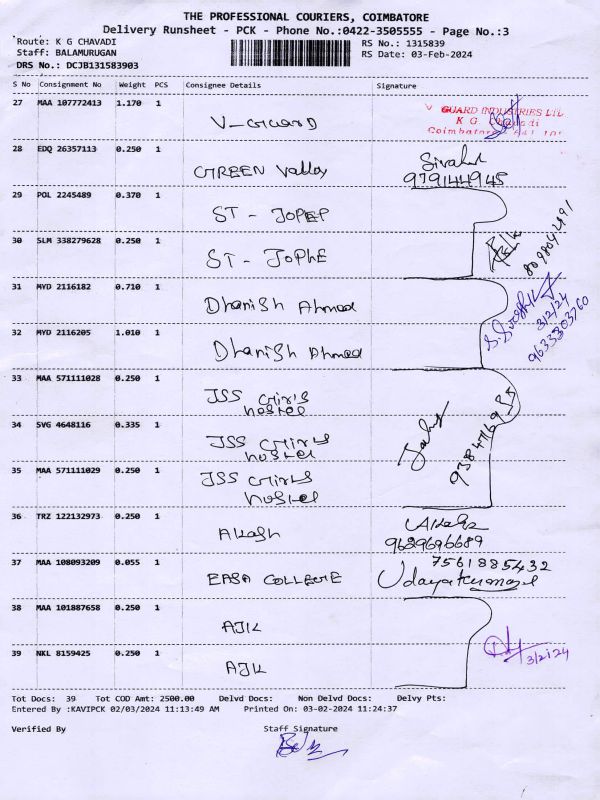 THE PROFESSIONAL COURIERS, COIMBATORE
Delivery Runsheet - PCK - Phone No.:0422-3505555 - Page No.:3
Route: K G CHAVADI
Staff: BALAMURUGAN
DRS No.: DCJB131583903
RS No.: 1315839
RS Date: 03-Feb-2024
S No Consignment No Weight PCS Consignee Details Signature
27 MAA 107772413 1.170 1 V-GUARD
V GUARD INDUSTRIES LTD
K G Chavadi
Coimbatore
28 EDQ 26357113 0.250 1 GREEN Valley
979144945
29 POL 2245489 0.370 1 ST - JOPEP
30 SLM 338279628 0.250 1 ST - JOPHE
31 MYD 2116182 0.710 1 Dhanish Ahmed
3/2/24
9633303760
32 MYD 2116205 1.010 1 Dhanish Ahmed
33 MAA 571111028 0.250 1 JSS Girls
hostel
34 SVG 4648116 0.335 1 JSS Girls
hostel
35 MAA 571111029 0.250 1 JSS Girls
hostel
36 TRZ 122132973 0.250 1 Akash
9689696689
37 MAA 108093209 0.055 1 EASA COLLEGE
7561885432
Udayakumar
38 MAA 101887658 0.250 1 AJK
39 NKL 8159425 0.250 1 AJK
3/2/24
Tot Docs: 39 Tot COD Amt: 2500.00 Delvd Docs: Non Delvd Docs: Delvy Pts:
Entered By :KAVIPCK 02/03/2024 11:13:49 AM Printed On: 03-02-2024 11:24:37
Verified By Staff Signature